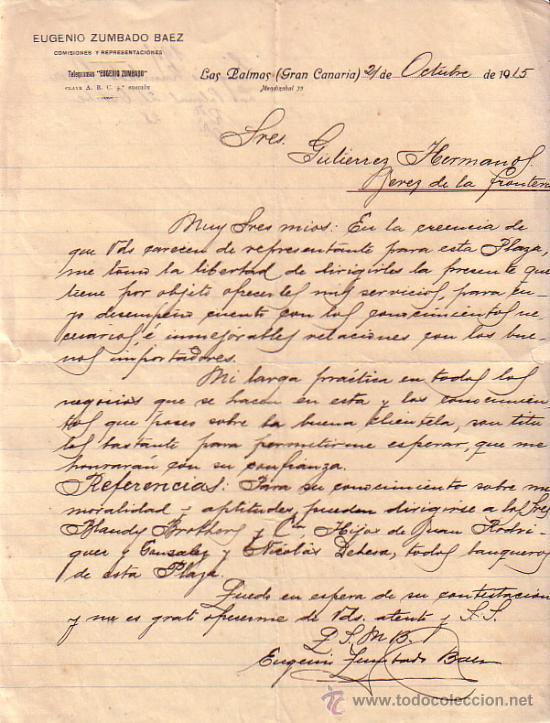 EUGENIO ZUMBADO BAEZ
COMISIONES Y REPRESENTACIONES
Telegramas "EUGENIO ZUMBADO"
CLAVE A. B. C. 5.ª EDICIÓN
Las Palmas (Gran Canaria) 21 de Octubre de 1915
Mendizabal
Sres.
Gutierrez Hermanos
Jerez de la frontera
Muy Sres mios: En la creencia de
que Vds carecen de representante para esta Plaza,
me tomo la libertad de dirigirles la presente que
tiene por objeto ofrecerles mis servicios, para cu
yo desempeño cuento con los conocimientos ne
cesarios, é inmejorables relaciones con los bue
nos importadores.
Mi larga práctica en todos los
negocios que se hacen en esta y los conocimien
tos que poseo sobre la buena clientela, son títu
los bastante para permitirme esperar, que me
honrarán con su confianza.
Referencias: Para su conocimiento sobre mi
moralidad y aptitudes, pueden dirigirse a los Sres
Blandy Brothers y Cia, Hijos de Juan Rodri
guez y Gonzalez y Nicolás Dehesa, todos banqueros
de esta Plaza.
Quedo en espera de su contestación
y me es grato ofrecerme de Vds. atento y S.S.
Q. S. M. B.
Eugenio Zumbado Baez
todocoleccion.net